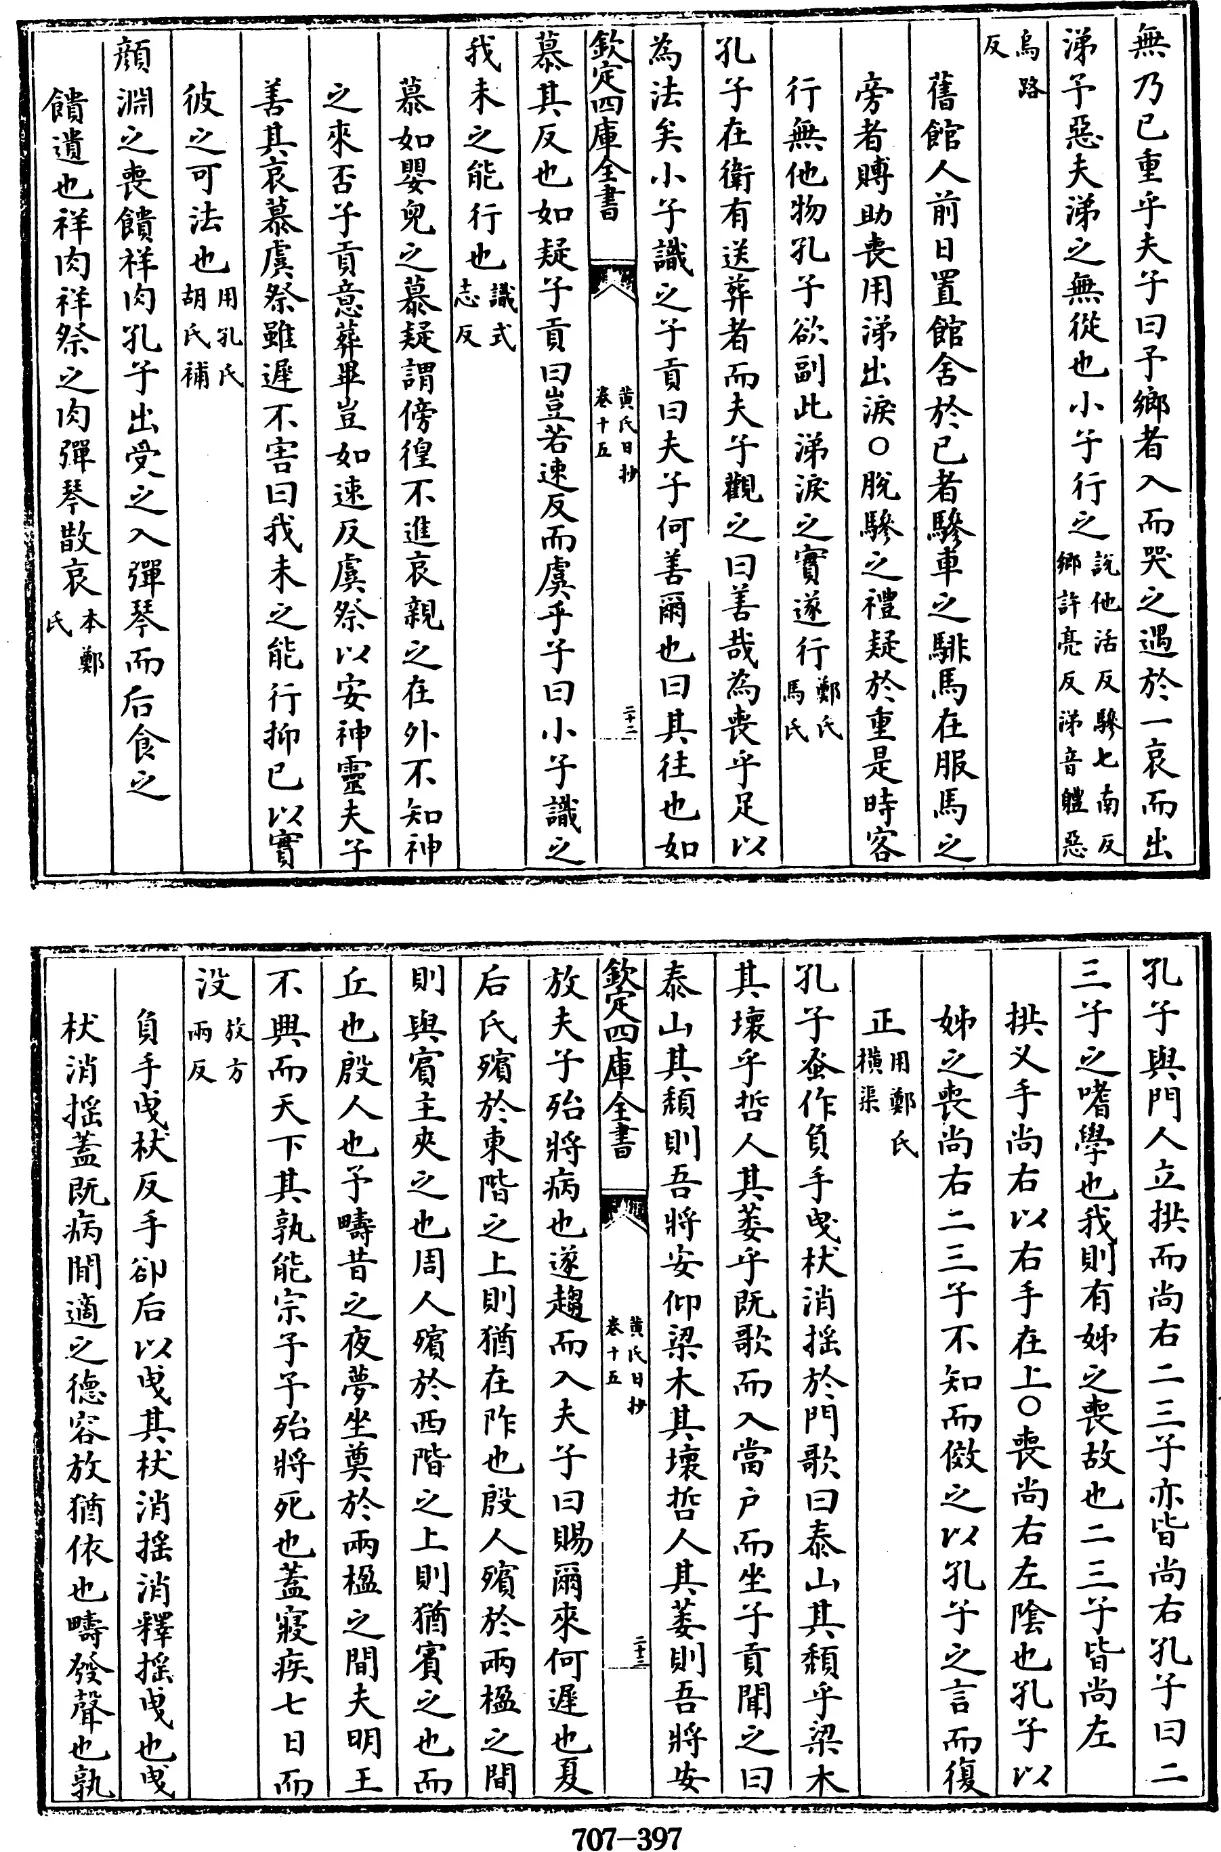 無乃已重乎夫子曰予鄉者入而哭之遇於一哀而出
涕予惡夫涕之無從也小子行之說他活反驂七南反鄉許亮反涕音體惡
烏路反
舊館人前日置館舍於已者驂車之騑馬在服馬之
旁者賻助喪用涕出淚○脫驂之禮疑於重是時客
行無他物孔子欲副此涕淚之實遂行鄭氏馬氏
孔子在衛有送葬者而夫子觀之曰善哉為喪乎足以
為法矣小子識之子貢曰夫子何善爾也曰其往也如
欽定四庫全書
黃氏日抄
卷十五
二十二
慕其反也如疑子貢曰豈若速反而虞乎子曰小子識之
我未之能行也識式志反
慕如嬰兒之慕疑謂傍徨不進哀親之在外不知神
之來否子貢意葬畢豈如速反虞祭以安神靈夫子
善其哀慕虞祭雖遲不害曰我未之能行抑已以實
彼之可法也用孔氏胡氏補
顔淵之喪饋祥肉孔子出受之入彈琴而后食之
饋遺也祥肉祥祭之肉彈琴散哀本鄭氏
孔子與門人立拱而尚右二三子亦皆尚右孔子曰二
三子之嗜學也我則有姊之喪故也二三子皆尚左
拱义手尚右以右手在上○喪尚右左陰也孔子以
姊之喪尚右二三子不知而傚之以孔子之言而復
正用鄭氏橫渠
孔子蚤作負手曳杖消搖於門歌曰泰山其頹乎梁木
其壞乎哲人其萎乎既歌而入當户而坐子貢聞之曰
泰山其頹則吾將安仰梁木其壞哲人其萎則吾將安
欽定四庫全書
黃氏日抄
卷十五
二十三
放夫子殆將病也遂趨而入夫子曰賜爾來何遲也夏
后氏殯於東階之上則猶在阼也殷人殯於兩楹之間
則與賓主夾之也周人殯於西階之上則猶賓之也而
丘也殷人也予疇昔之夜夢坐奠於兩楹之間夫明王
不興而天下其孰能宗予予殆將死也蓋寢疾七日而
没放方兩反
負手曳杖反手卻后以曳其杖消搖消釋搖曳也曳
杖消搖蓋既病閒適之德容放猶依也疇發聲也孰
707-397